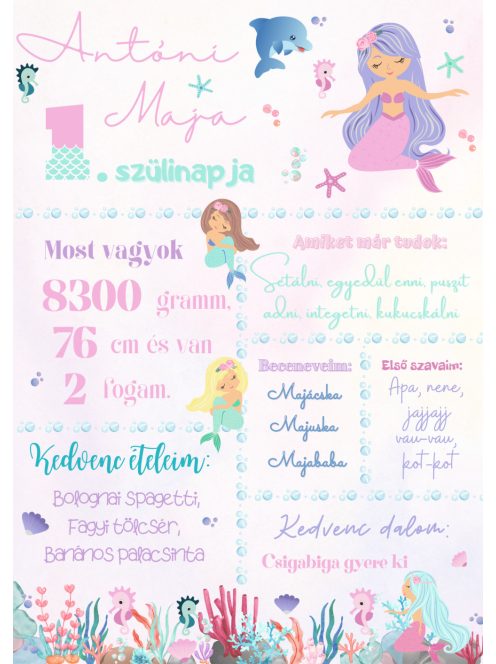 Antóni
Maja
1. szülinapja
Most vagyok
8300 gramm,
76 cm és van
2 fogam.
Amiket már tudok:
Sétálni, egyedül enni, puszit
adni, integetni, kukucskálni
Beceneveim:
Majácska
Majuska
Majababa
Első szavaim:
Apa, nene,
jajjajj
vau-vau,
kot-kot
Kedvenc ételeim:
Bolognai spagetti,
Fagyi tölcsér,
Banános palacsinta
Kedvenc dalom:
Csigabiga gyere ki